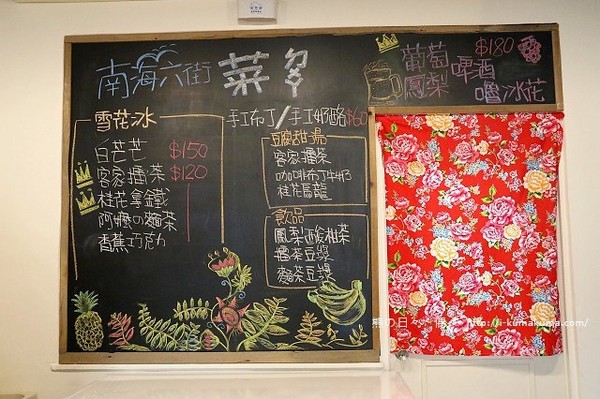 南海六街 菜ㄆㄚ
葡萄 $180
鳳梨 啤酒
嚕冰花
雪花冰
白芒芒 $150
客家擂茶 $120
桂花拿鐵
阿嬤の麵茶
香蕉巧克力
手工布丁/手工奶酪 $60
豆腐甜湯
客家擂茶
咖啡布丁牛奶
桂花烏龍
飲品
鳳梨酸柑茶
擂茶豆漿
麵茶豆漿
熊の日々
http://i-kumakuma.com/